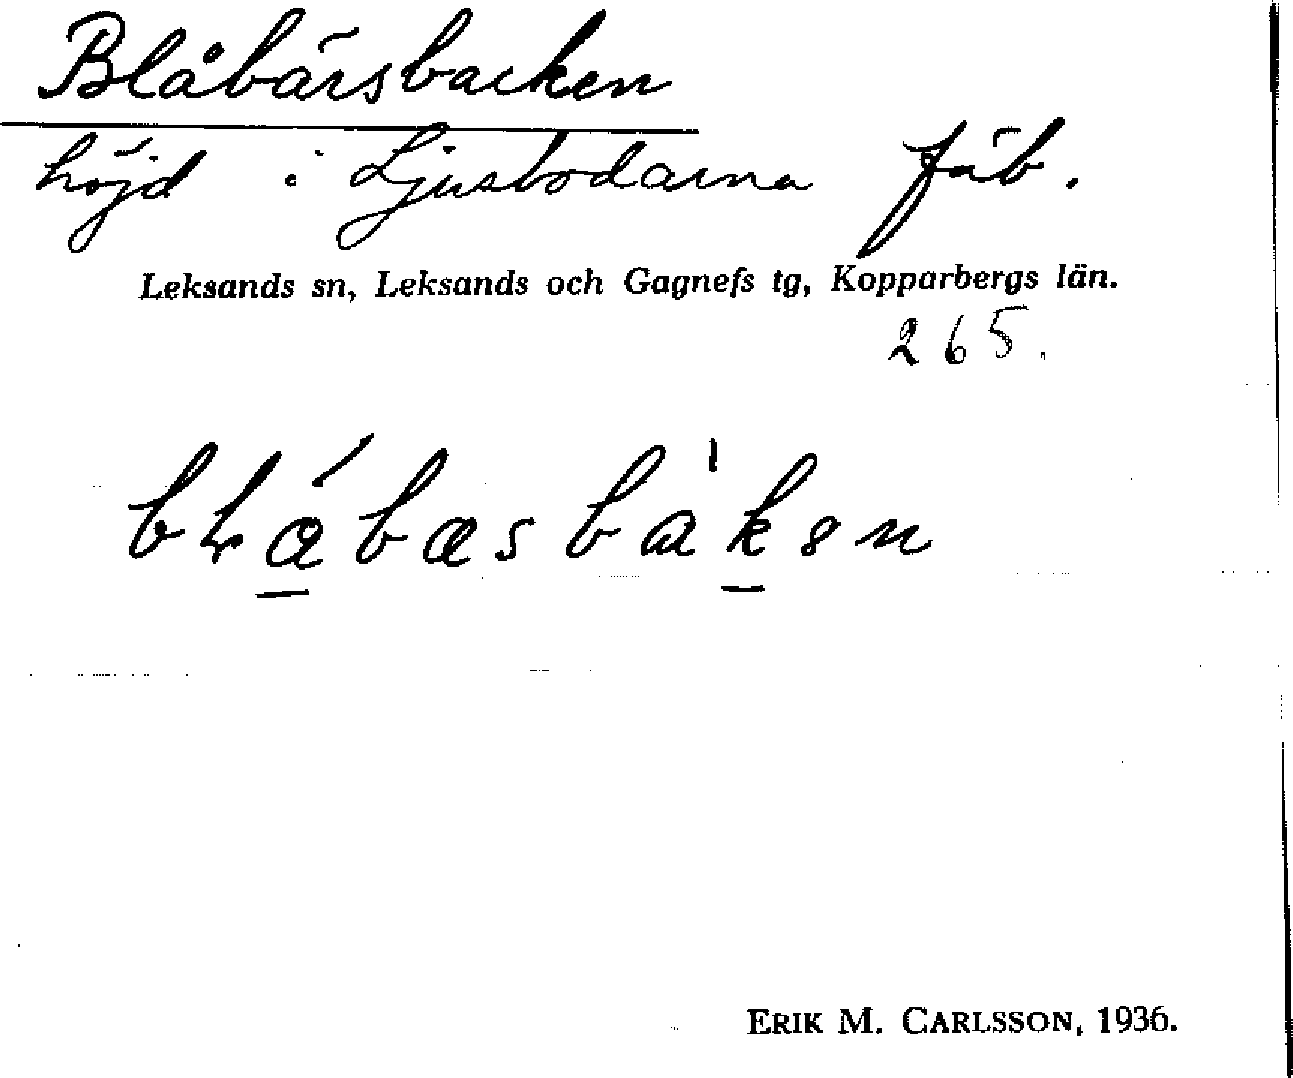 Blåbärsbacken
höjd i Ljusbodarna fäb.
Leksands sn, Leksands och Gagnefs tg, Kopparbergs län.
265.
ERIK M. CARLSSON, 1936.